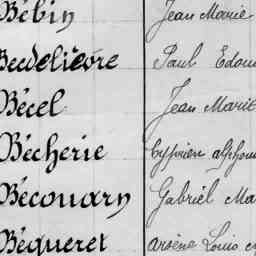 Bébin Jean Marie
Becdelièvre Paul Edou
Bécel Jean Marie
Bécherie Cyprien alphon
Bécouarn Gabriel Ma
Béqueret arsène Louis